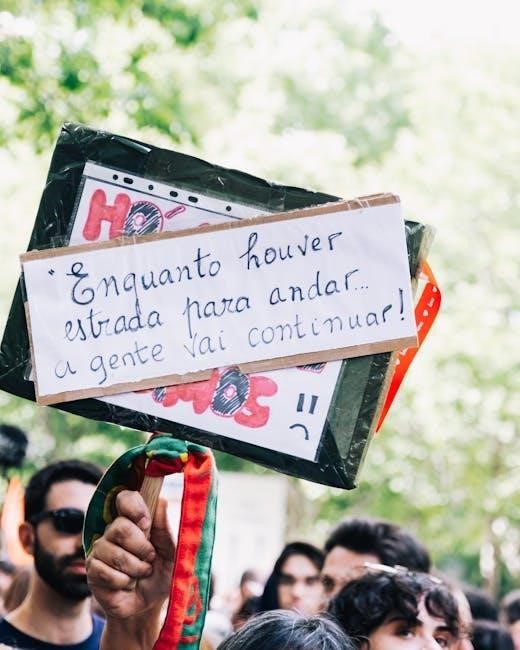 HÓ
"Enquanto houver
estrada para andar...
a gente vai continuar!